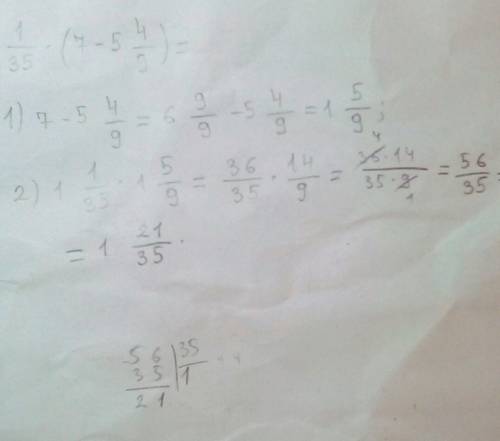 1/35 · (7 - 5 4/9) =
1) 7 - 5 4/9 = 6 9/9 - 5 4/9 = 1 5/9;
2) 1 1/35 · 1 5/9 = 36/35 · 14/9 = 36 4 · 14 / 35 · 9 1 = 56/35 =
= 1 21/35.
56 | 35
35 | 1
21